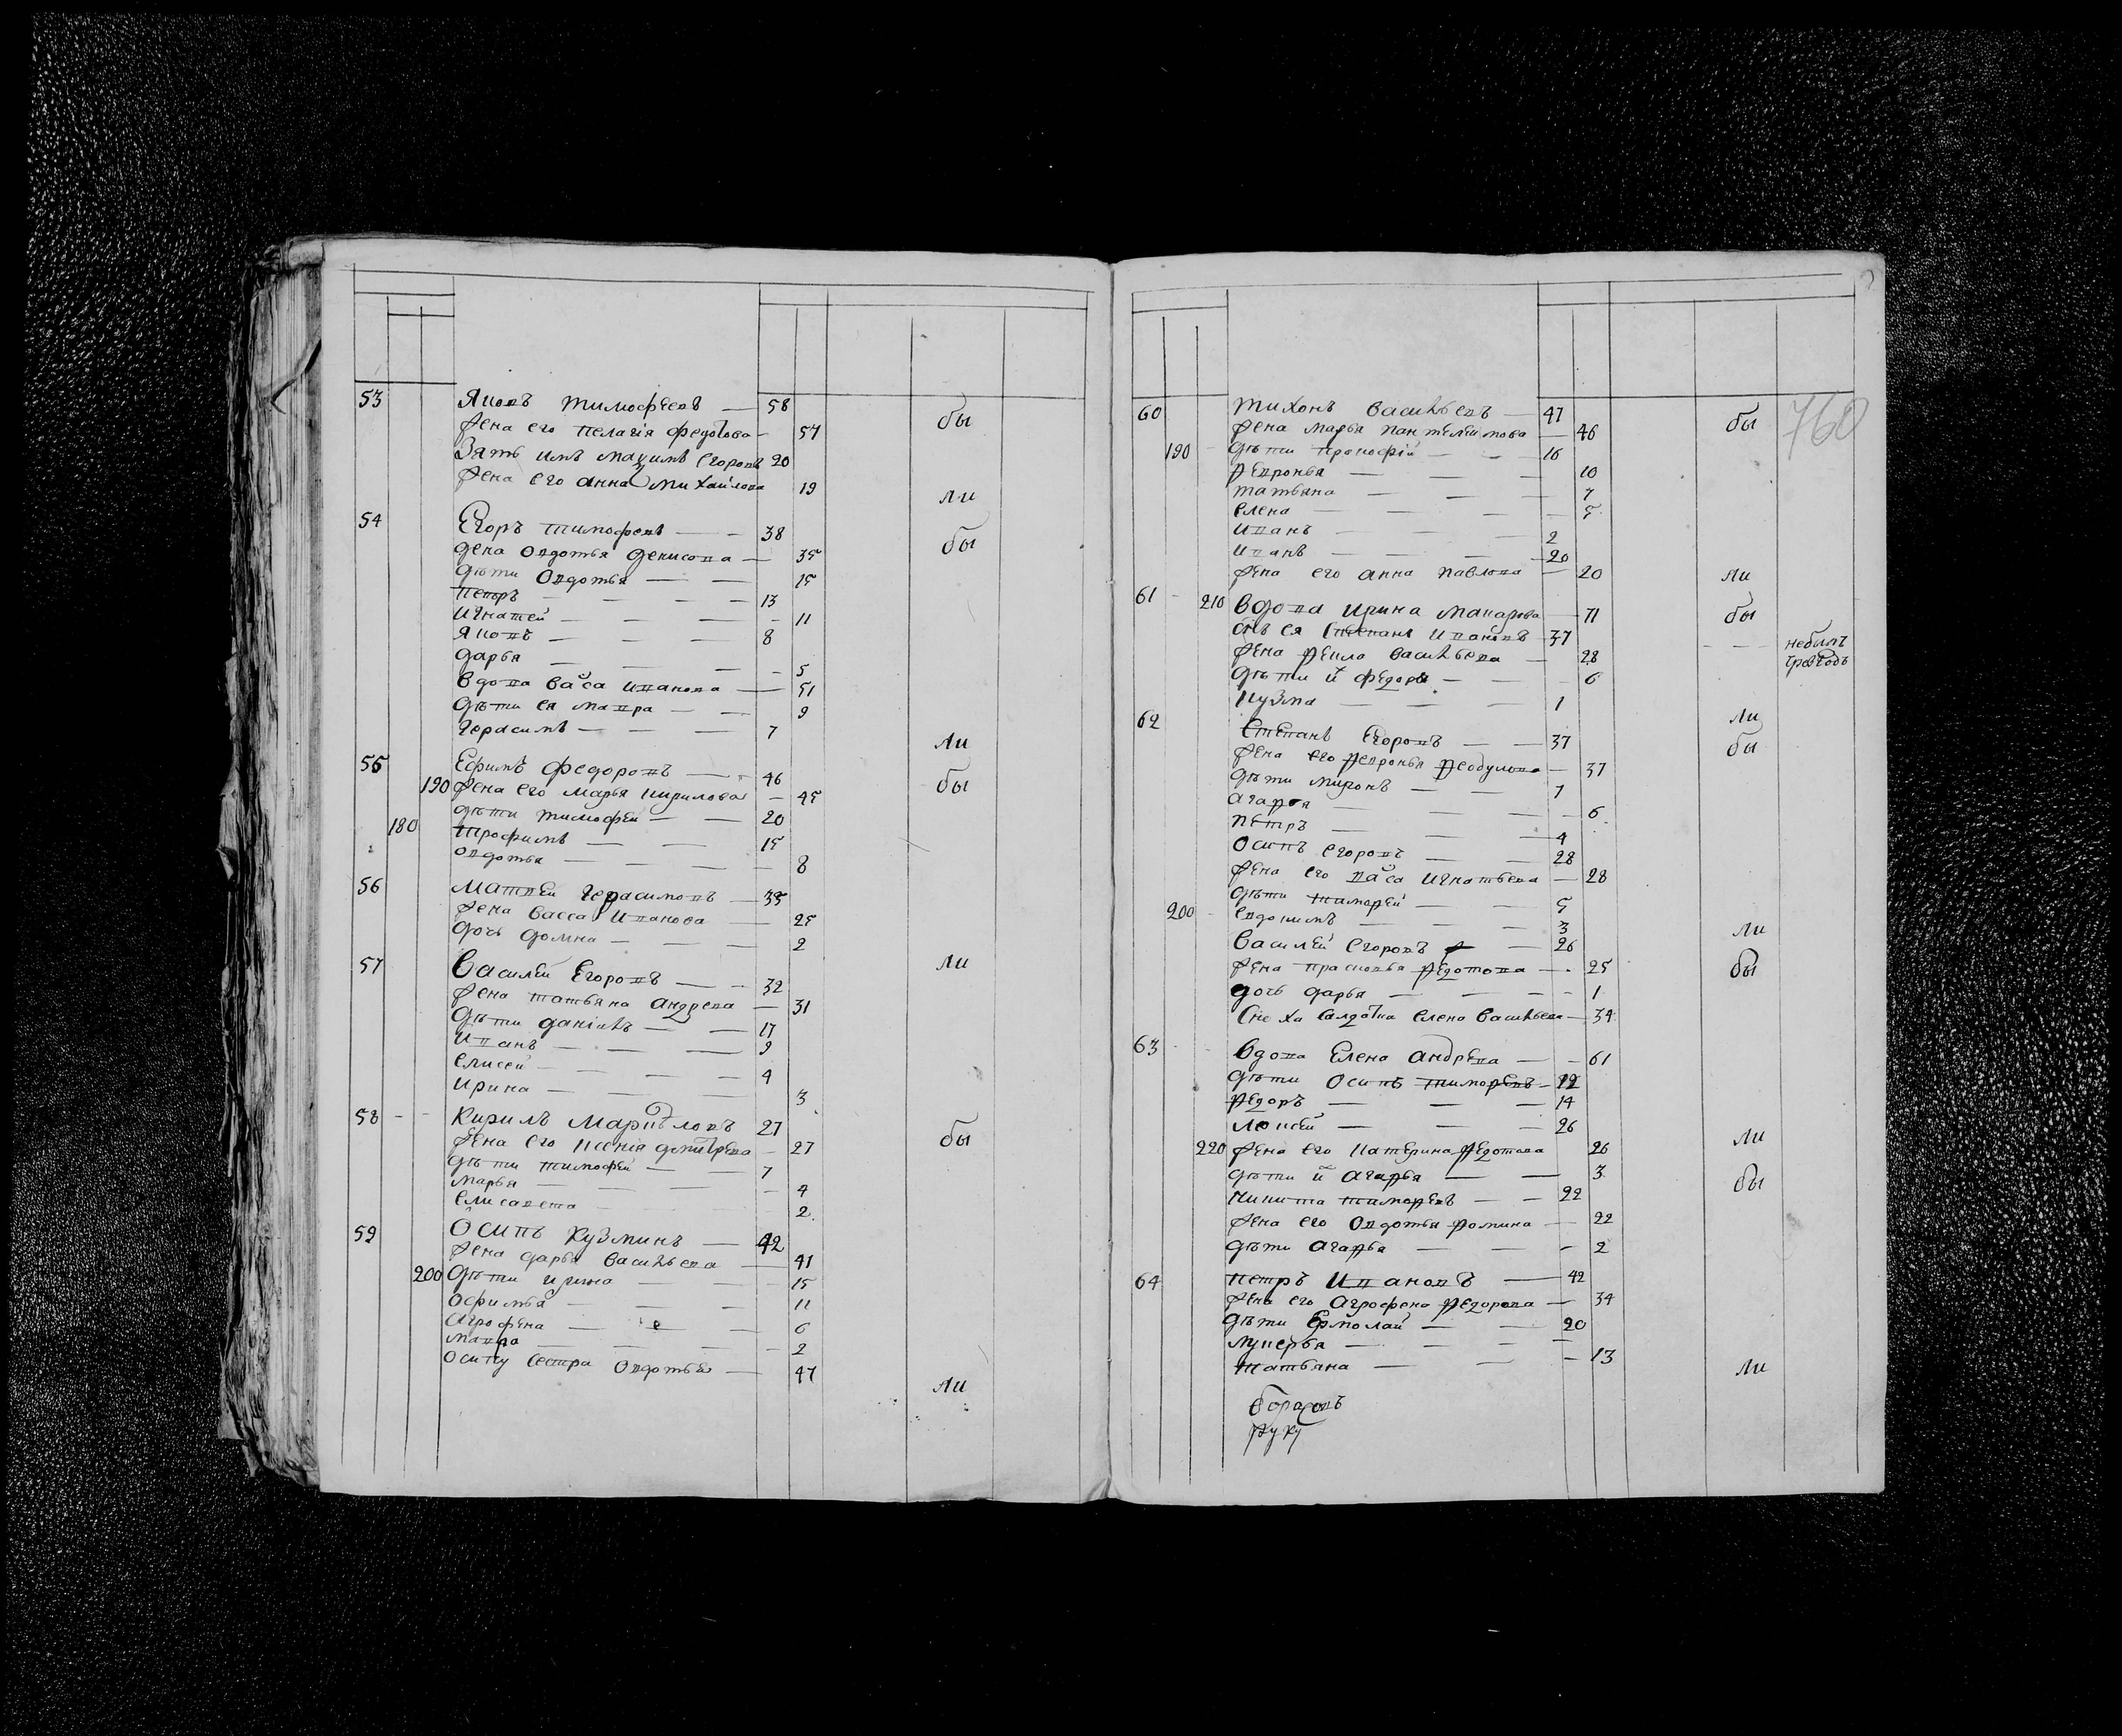 53 Яковъ Тимофеевъ — 58 бы
жена его Пелагія Федотова — 57
Зять имъ Маѯимъ Егоровъ 20
жена его Анна Михайлова 19 ли
54 Егоръ Тимофеевъ — 38 бы
жена Овдотья Денисова — 35
дѣти Овдотья — 15
Петръ — 13
Игнатей — 11
Яковъ — 8
Дарья — 5
вдова Васа Иванова — 51
дѣти ея Мавра — 9
Герасимъ — 7 ли
55 Ефимъ Федоровъ — 46 бы
190 жена его Марья Кирилова — 45
дѣти Тимофей — 20
180 Трофимъ — 15
Овдотья — 8
56 Матвей Герасимовъ — 35
жена Васса Иванова — 25
дочь Домна — 2 ли
57 Василей Егоровъ — 32
жена Татьяна Андрева — 31
дѣти Даніилъ — 17
Иванъ — 9
Елисей — 4
Ирина — 3
58 Кирилъ Мариловъ 27 бы
жена его Ксенія Дмитрева — 27
дѣти Тимофей — 7
Марья — 4
Елисавета — 2
59 Осипъ Кузминъ — 42
жена Дарья Васильева — 41
200 дѣти Ирина — 15
Офимья — 11
Агрофена — 6
Мавра — 2
Осипу сестра Овдотья — 47 ли
760
60 Тихонъ Васильевъ — 47 бы
жена Марья Пантелеимова — 46
190 дѣти Прокофій — 16
Февронья — 10
Татьяна — 7
Елена — 5
Иванъ — 2
Иванъ — 20
жена его Анна Павлова — 20 ли
61 210 вдова Ирина Макарова — 71 бы
снъ ея Степанъ Ивановъ — 37 небытъ
жена Васильева — 28
дѣти й Федоръ — 6
Кузма — 1 ли
62 Степанъ Егоровъ — 37 бы
жена его Февронья Феодулова — 37
дѣти Миронъ — 7
Агафья — 6
Петръ — 4
Осипъ Егоровъ — 28
жена его Васа Игнатьева — 28
дѣти Тимофей — 5
200 Евдокимъ — 3 ли
Василей Егоровъ — 26
жена Прасковья Федотова — 25 бы
дочь Дарья — 1
Сноха салдатка Елена Васильева — 34
63 вдова Елена Андрева — 61
дѣти Осипъ Тимофеевъ — 12
Федоръ — 14
Мокей — 26 ли
220 жена его Катерина Федотова 26
дѣти й Агафья — 3 бы
Никита Тимофеевъ — 22
жена его Овдотья Фомина — 22
дѣти Агафья — 2
64 Петръ Ивановъ — 42
жена его Агрофена Федорова — 34
дѣти Ермолай — 20
Лукерья —
Татьяна — 13 ли